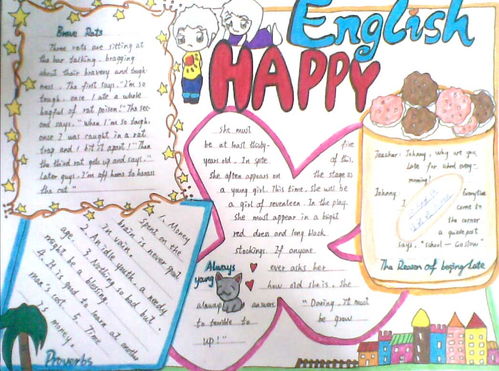 English
HAPPY
Brave Rats
Three rats are sitting at
the bar talking, bragging
about their bravery and tough-
ness. The first says, "I'm so
tough, once I ate a whole
bagful of rat poison!" The sec-
ond says, "When I'm so tough,
once I was caught in a rat
trap and I bit it apart!" Then
the third rat gets up and says,"
Later guys, I'm off home to harass
the cat."
she must
be at least thirty- five
years-old. In spite of this,
she often appears on the stage as
a young girl. This time, she will be
a girl of seventeen. In the play,
she must appear in a bright
red dress and long black
stockings. If anyone
ever asks her
how old she is, she
always answers,
"Darling, It must
be terrible to be grow
up!"
Always
young
Teacher: Johnny, why are you
late for school every
morning?
Johnny Everytime
come to
the corner
a guidepost
says, "School — Go Slow".
The Reason of being Late
1. Money spent on the
brain is never spent
in vain.
2. An idle youth, a needy
age.
3. Nothing so bad but
might be a blessing.
4. It is good to learn at another
man's cost.
5. Time
is money.
Proverbs